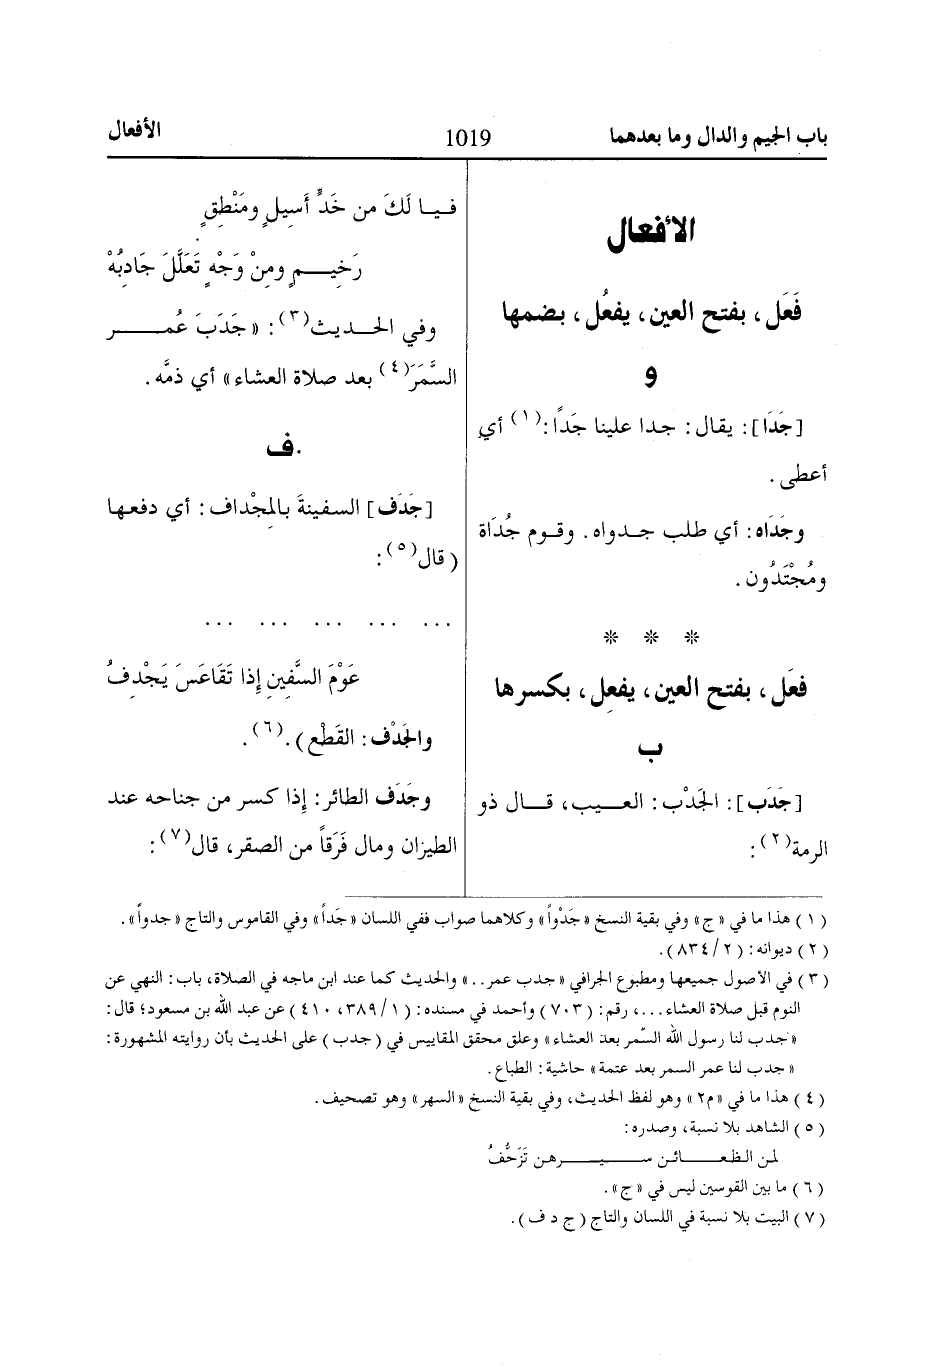 باب الجيم والدال وما بعدهما
1019
الأفعال
الأفعال
فَعَل، بفتح العين، يفعُل، بضمها
و
[جَدَا]: يقال: جدا علينا جَداً:(١) أي
أعطى.
وجَدَاه: أي طلب جـدواه. وقـوم جُدَاة
ومُجْتَدُون.
* * *
فعَل، بفتح العين، يفعِل، بكسرها
ب
[جَدَب]: الجَدْب: العـيب، قـال ذو
الرمة(٢):
فـيـا لَكَ من خَدٍّ أَسِيلٍ ومَنْطِقٍ
رَخِيـمٍ ومِنْ وَجْهٍ تَعَلَّلَ جَادِبُهْ
وفي الحـديث(٣): «جَدَبَ عُمـر
السَّمَرَ(٤) بعد صلاة العشاء» أي ذمَّه.
ف
[جَدَف] السفينةَ بالمِجْداف: أي دفعـها
(قال(٥):
... ... ... ... ...
عَوْمَ السَّفِينِ إِذا تَقَاعَسَ يَجْدِفُ
والجَدْف: القَطْع).(٦).
وجَدَف الطائر: إِذا كسر من جناحه عند
الطيران ومال فَرَقاً من الصقر، قال(٧):
(١) هذا ما في «ج» وفي بقية النسخ «جَدْواً» وكلاهما صواب ففي اللسان «جَداً» وفي القاموس والتاج «جدواً».
(٢) ديوانه: (٢/ ٨٣٤).
(٣) في الأصول جميعها ومطبوع الجرافي «جدب عمر..» والحديث كما عند ابن ماجه في الصلاة، باب: النهي عن
النوم قبل صلاة العشاء...، رقم: (٧٠٣) وأحمد في مسنده: (١/ ٣٨٩، ٤١٠) عن عبد الله بن مسعود؛ قال:
«جدب لنا رسول الله السَّمر بعد العشاء» وعلق محقق المقاييس في (جدب) على الحديث بأن روايته المشهورة:
«جدب لنا عمر السمر بعد عتمة» حاشية: الطباع.
(٤) هذا ما في «م٢» وهو لفظ الحديث، وفي بقية النسخ «السهر» وهو تصحيف.
(٥) الشاهد بلا نسبة، وصدره:
لمن الظـعـائـن سـيـرهـن تَزَحُّفُ
(٦) ما بين القوسين ليس في «ج».
(٧) البيت بلا نسبة في اللسان والتاج (ج د ف).